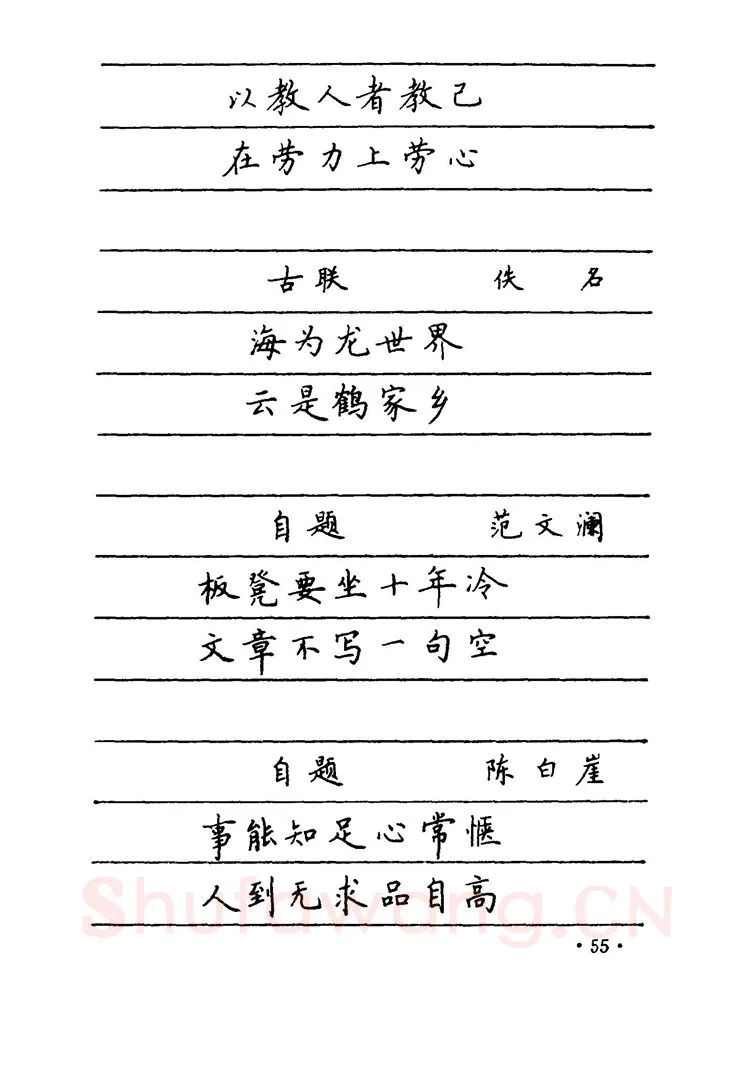 以教人者教己
在劳力上劳心
古联 佚 名
海为龙世界
云是鹤家乡
自题 范文澜
板凳要坐十年冷
文章不写一句空
自题 陈白崖
事能知足心常惬
人到无求品自高
Shufawang.CN
·55·